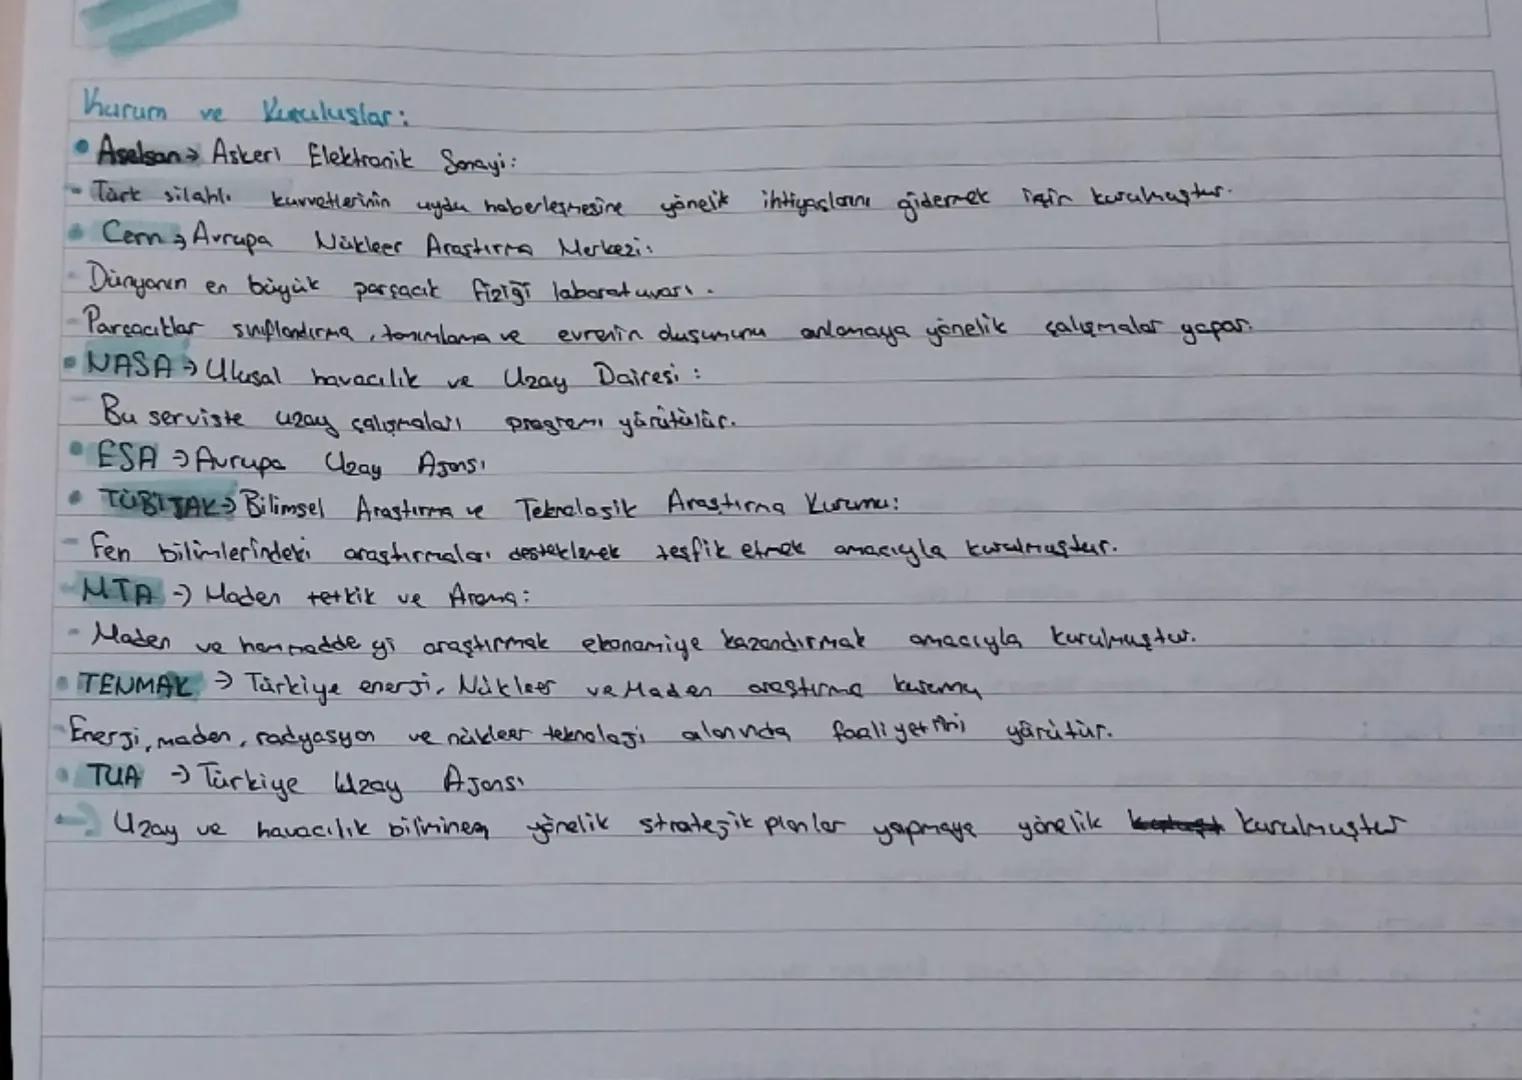 Kurum ve Kuruluşlar:
• Aselsan → Askeri Elektronik Sanayi:
- Türk silahlı kuvvetlerinin uydu haberleşmesine yönelik ihtiyaçlarını gidermek için kurulmuştur.
• Cern → Avrupa Nükleer Araştırma Merkezi:
- Dünyanın en büyük parçacık fiziği laboratuvarı.
- Parçacıklar sınıflandırma, tanımlama ve evrenin oluşumunu anlamaya yönelik çalışmalar yapar.
• NASA → Ulusal havacılık ve Uzay Dairesi:
- Bu serviste uzay çalışmaları programı yürütülür.
• ESA → Avrupa Uzay Ajansı
• TÜBİTAK → Bilimsel Araştırma ve Teknolojik Araştırma Kurumu:
- Fen bilimlerindeki araştırmaları desteklemek teşfik etmek amacıyla kurulmuştur.
- MTA → Maden tetkik ve Arama:
- Maden ve hammadde yi araştırmak ekonomiye kazandırmak amacıyla kurulmuştur.
• TENMAK → Türkiye enerji, Nükleer ve Maden araştırma kurumu
- Enerji, maden, radyasyon ve nükleer teknoloji alanında faaliyetini yürütür.
• TUA → Türkiye Uzay Ajansı
- Uzay ve havacılık bilimine yönelik stratejik planlar yapmaya yönelik kurulmuştur